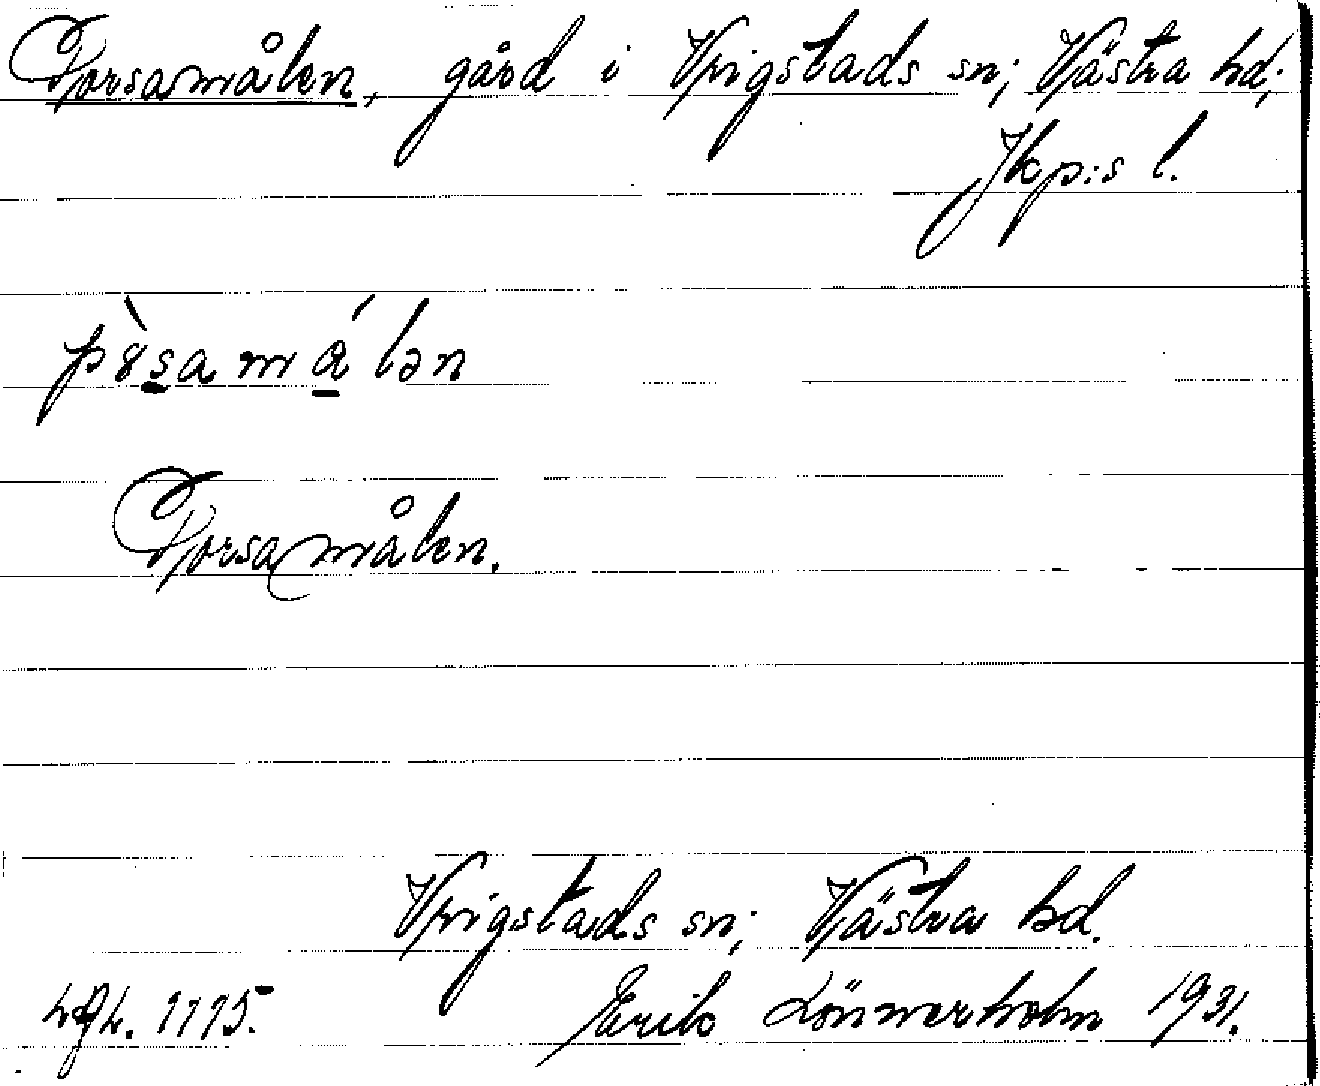 Porsamålen, gård i Vrigstads sn; Västra hd;
Jkp:s l.
pȣ̀samǻlən
Porsamålen.
Vrigstads sn; Västra hd.
Erik Lönnerholm 1931.